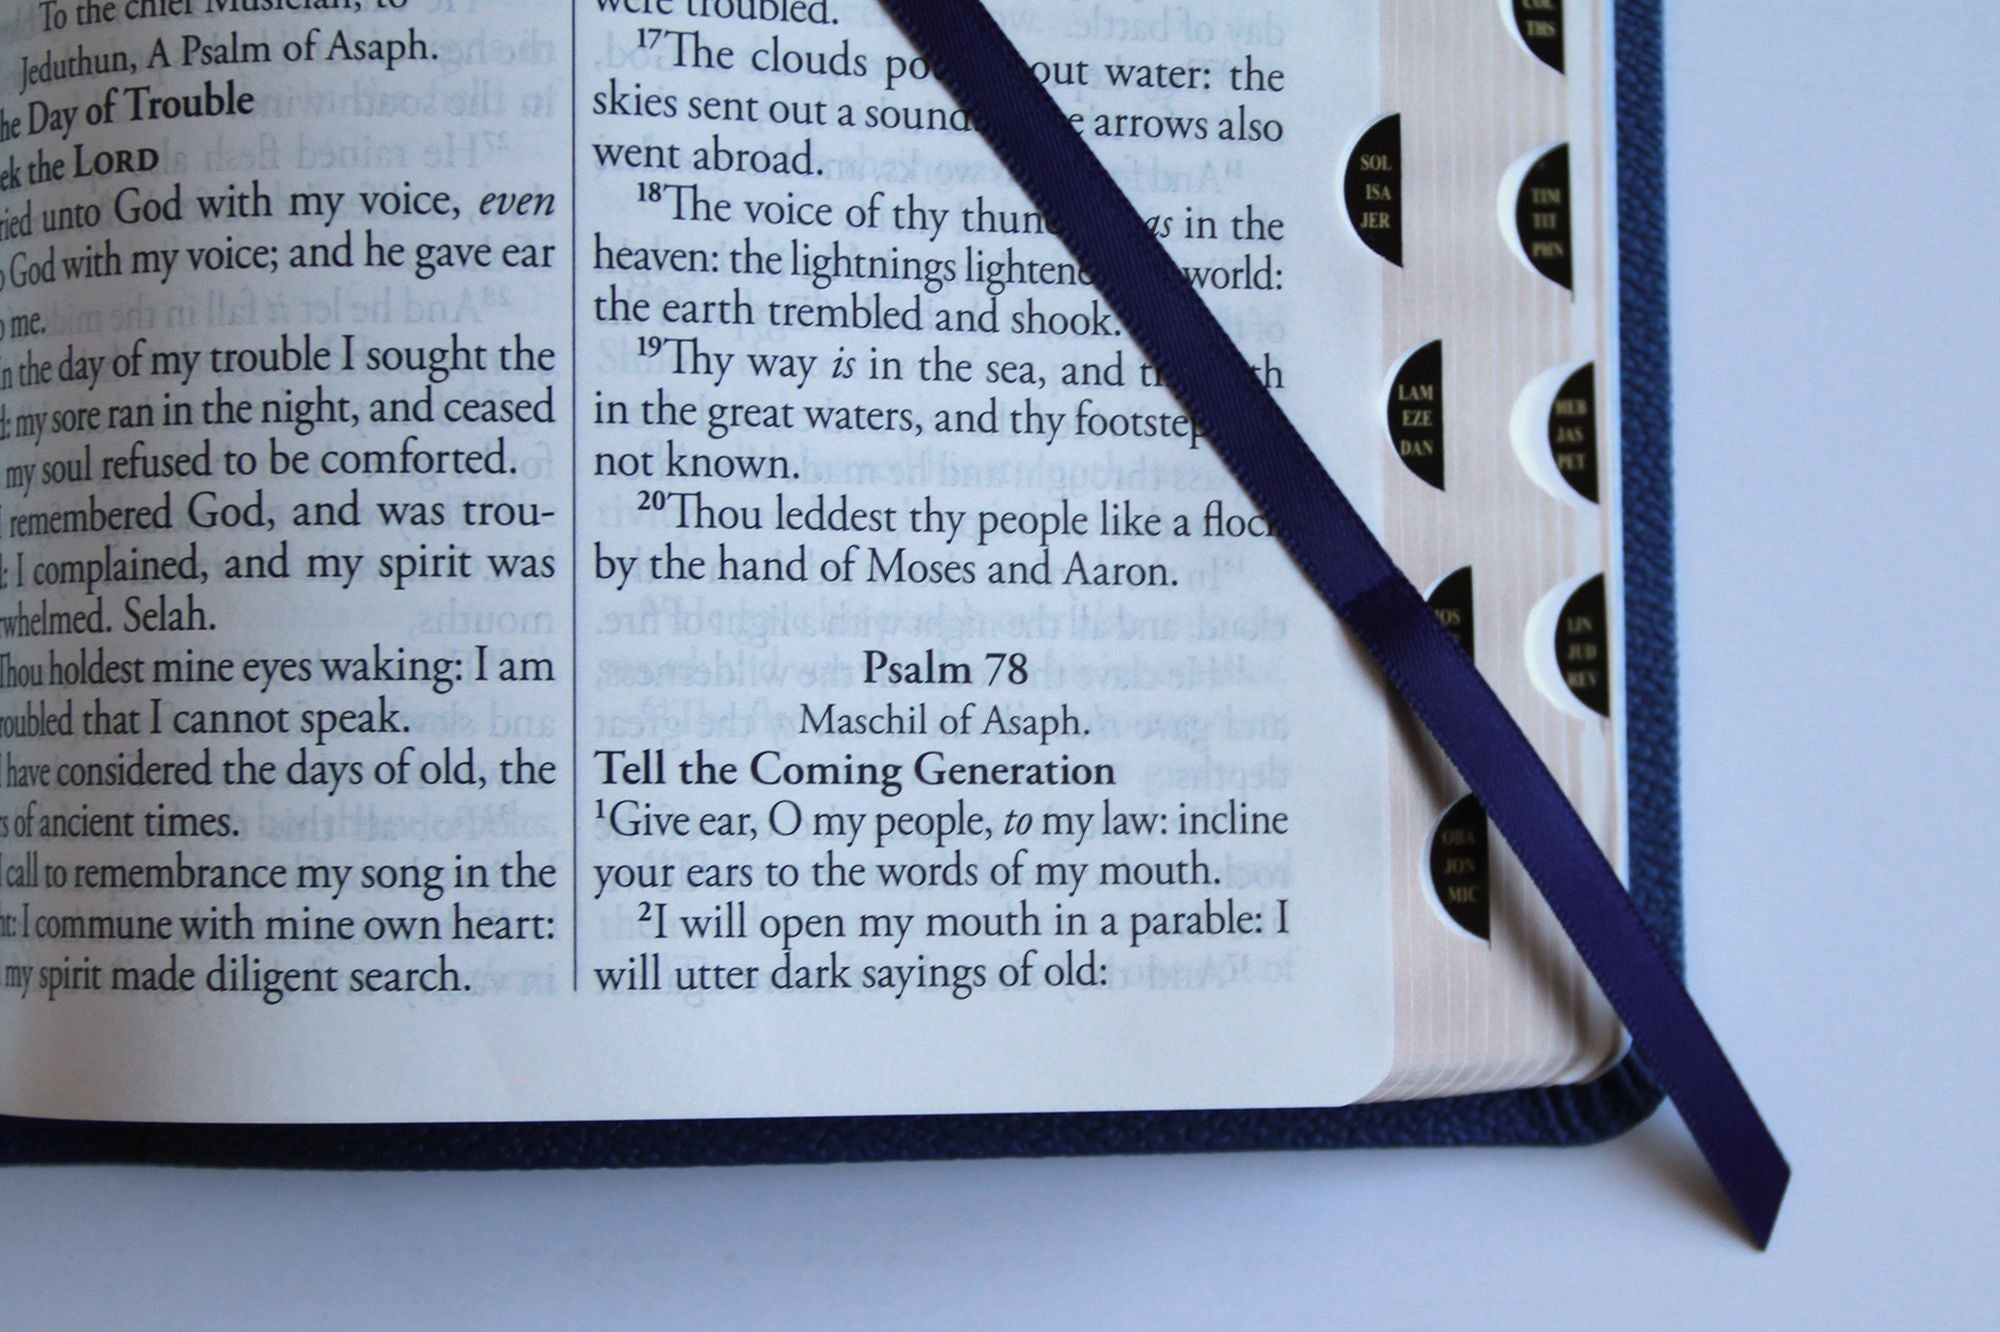 To the chief Musician, to
Jeduthun, A Psalm of Asaph.
Day of Trouble
the LORD
unto God with my voice, even
God with my voice; and he gave ear
me.
the day of my trouble I sought the
my sore ran in the night, and ceased
my soul refused to be comforted.
remembered God, and was trou-
I complained, and my spirit was
whelmed. Selah.
Thou holdest mine eyes waking: I am
troubled that I cannot speak.
have considered the days of old, the
of ancient times.
call to remembrance my song in the
I commune with mine own heart:
my spirit made diligent search.
were troubled.
17The clouds out water: the
skies sent out a sound arrows also
went abroad.
18The voice of thy in the
heaven: the lightnings world:
the earth trembled and shook.
19Thy way is in the sea, and
in the great waters, and thy
not known.
20Thou leddest thy people like a flock
by the hand of Moses and Aaron.
Psalm 78
Maschil of Asaph.
Tell the Coming Generation
1Give ear, O my people, to my law: incline
your ears to the words of my mouth.
2I will open my mouth in a parable: I
will utter dark sayings of old:
THS
SOL
ISA
JER
TIM
TIT
PHN
LAM
EZE
DAN
HEB
JAS
PET
JUD
REV
OBA
JON
MIC